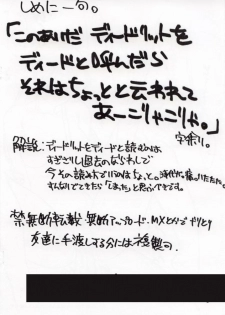 しめに一句。
「このあいだ ディードリットを
ディードと呼んだら
それはちょっとと云われて
あーごりゃごりゃ。」
字余り。
解説：ディードリットをディードと読むのは
すぎさりし過去のならわしで
今その読み方でいうのはちょっと。
すんなりでてきたら「しまった」と思ふできです。
禁無断転載・無断アップロード・MXとかでやりとり
友達に手渡しする分には複製可